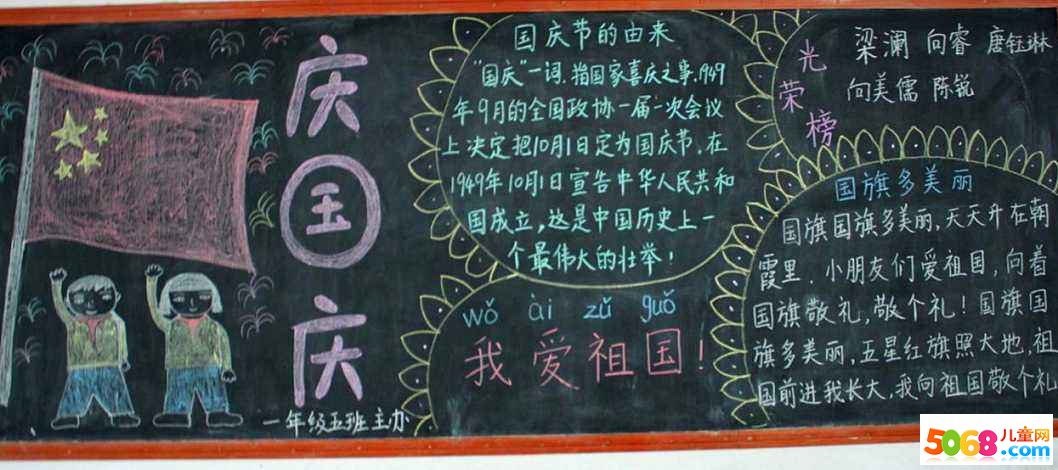 庆
国
庆
一年级五班主办
国庆节的由来
"国庆"一词,指国家喜庆之事.1949
年9月的全国政协一届一次会议
上决定把10月1日定为国庆节.在
1949年10月1日宣告中华人民共和
国成立,这是中国历史上一
个最伟大的壮举!
wǒ ài zǔ guó
我爱祖国!
光荣榜
梁澜 向睿 唐钰琳
向美儒 陈锐
国旗多美丽
国旗国旗多美丽,天天升在朝
霞里.小朋友们爱祖国,向着
国旗敬礼,敬个礼!国旗国
旗多美丽,五星红旗照大地,祖
国前进我长大,我向祖国敬个礼
5068儿童网
.com